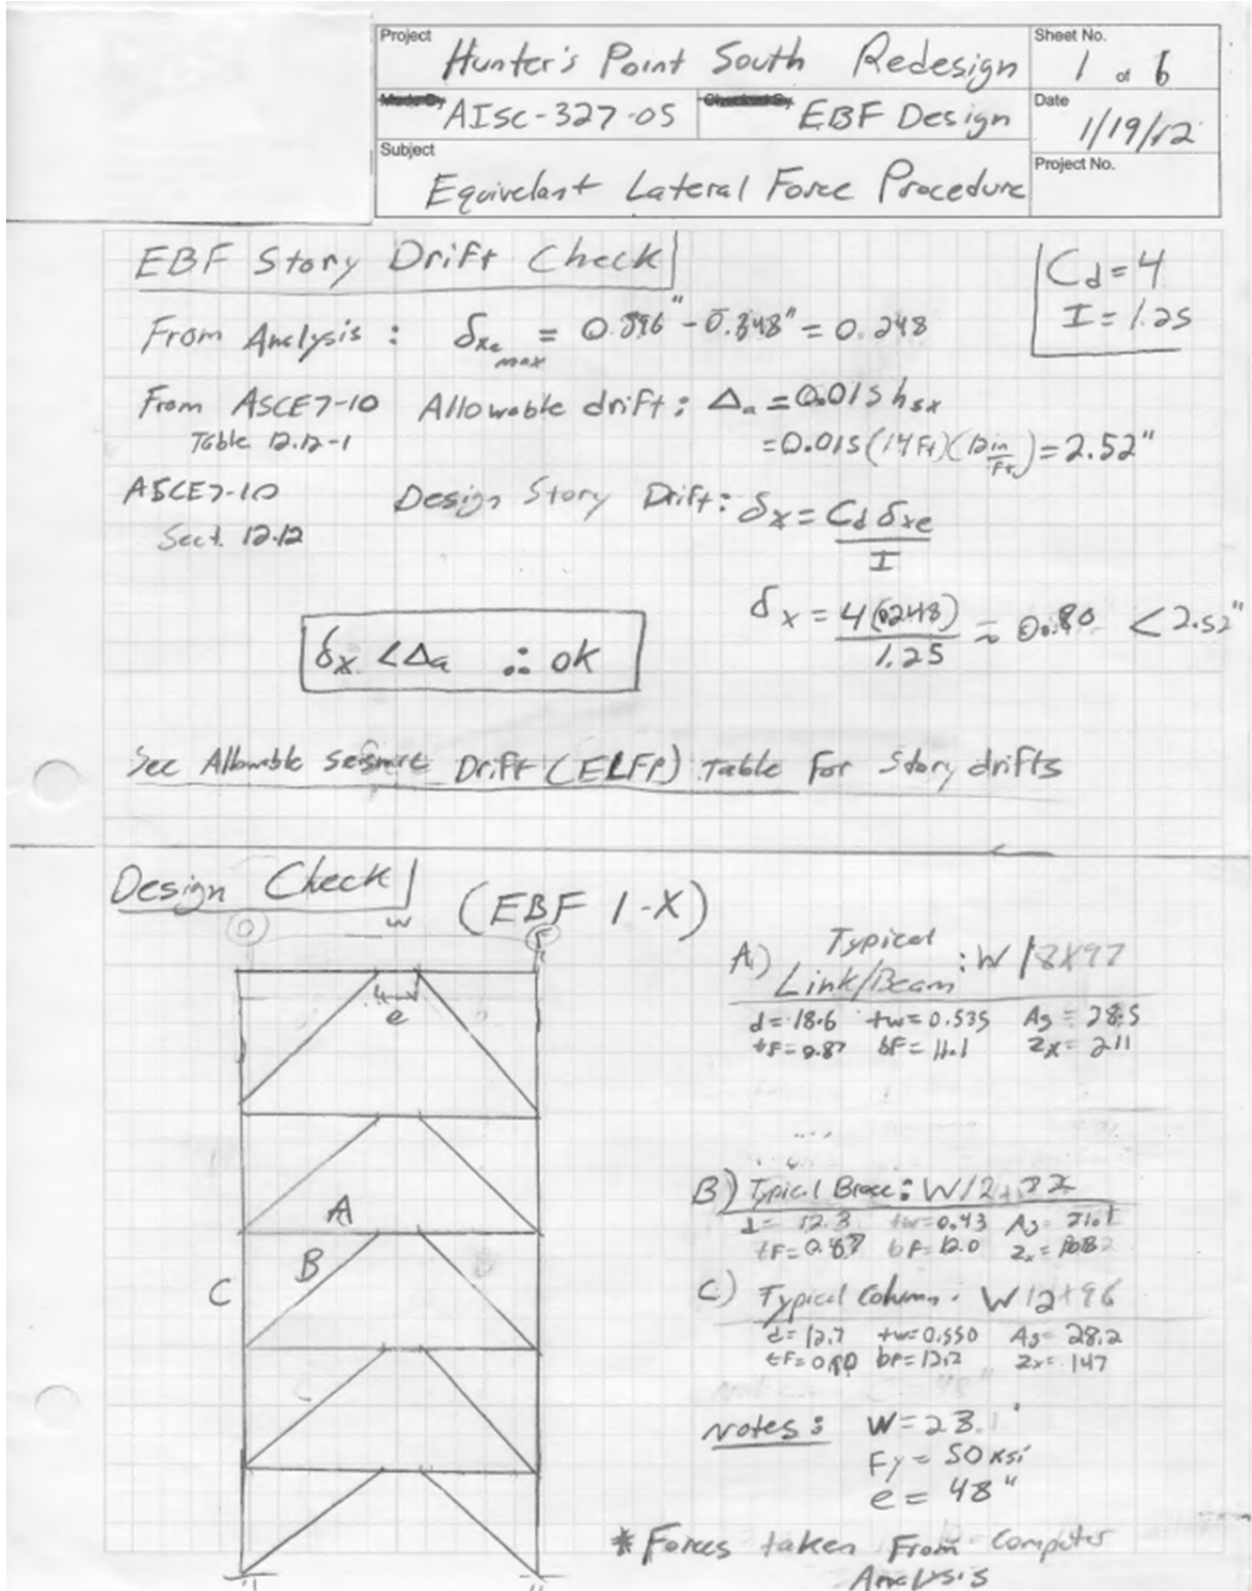 Project
Hunter's Point South Redesign
Sheet No.
1 of 6
AISC-327-05
EBF Design
Date
1/19/12
Subject
Equivelant Lateral Force Procedure
Project No.
EBF Story Drift Check
Cd = 4
I = 1.25
From Analysis : δxe max = 0.596" - 0.348" = 0.248
From ASCE7-10 Allowable drift: Δa = 0.015 hsx
Table 12.12-1
= 0.015 (14 Ft)(12 in/Ft) = 2.52"
ASCE7-10 Design Story Drift: δx = Cd δxe / I
Sect. 12.12
δx = 4(0.248) / 1.25 = 0.80 < 2.52"
δx < Δa ∴ ok
See Allowable Seismic Drift (ELFP) Table For Story drifts
Design Check
(EBF 1-X)
W
e
A
B
C
A) Typical Link/Beam : W18X97
d = 18.6 tw = 0.535 Ag = 28.5
tF = 0.87 bF = 11.1 Zx = 211
B) Typical Brace :
d = 12.3 tw = 0.43 Ag =
bF = 12.0 Zx =
C) Typical Column. W12x96
d = 12.7 tw = 0.550 Ag = 28.2
tF = 0.90 bF = 12.2 Zx = 147
Notes : W = 23.
Fy = 50 ksi
e = 48"
* Forces taken From Computer
Analysis